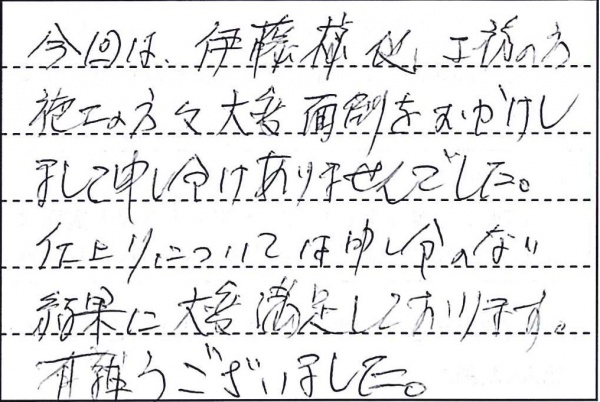 今回は、伊藤様他、工務の方
施工の方々大変面倒をおかけし
まして申し分けありませんでした。
仕上りについては申し分のない
結果に大変満足しております。
有難うございました。